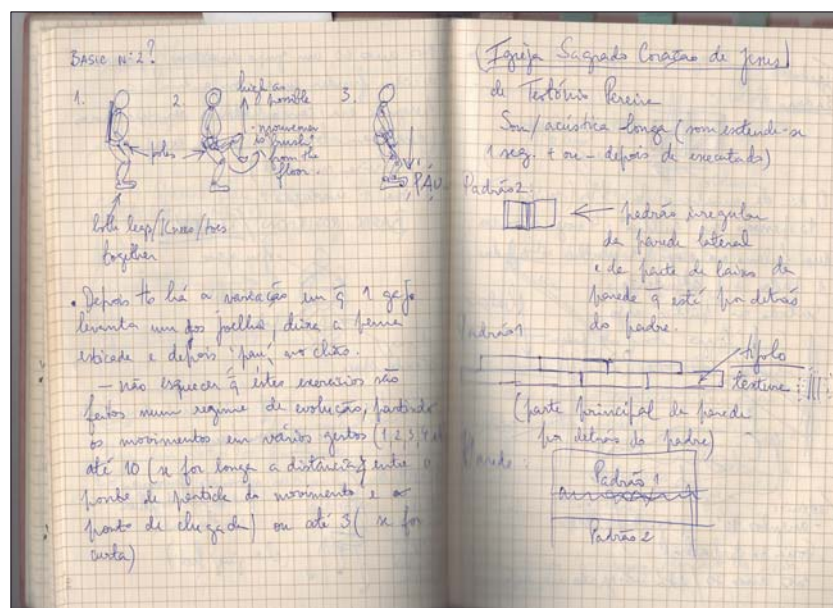 BASIC Nº2?
1.
2.
3.
high as
possible
- movement
is push
from the
floor.
poles
PÁU
both legs/knees/toes
together
• Depois tb há a variação em q̃ 1 gajo
levanta um dos joelhos, deixa a perna
esticada e depois 'pau' no chão.
— não esquecer q̃ estes exercícios são
feitos num regime de evolução, partindo
os movimentos em vários gestos (1,2,3,4
até 10 (se for longa a distância entre o
ponto de partida do movimento e o
ponto de chegada) ou até 3 (se for
curta)
(Igreja Sagrado Coração de Jesus)
de Teotónio Pereira
Som/acústica longa (som estende-se
1 seg. + ou - depois de executado)
Padrão2:
padrão irregular
da parede lateral
e da parte de baixo da
parede q̃ está por detrás
do padre.
Padrão1
tijolo
texture
(parte principal da parede
por detrás do padre)
Parede:
Padrão 1
Padrão 2